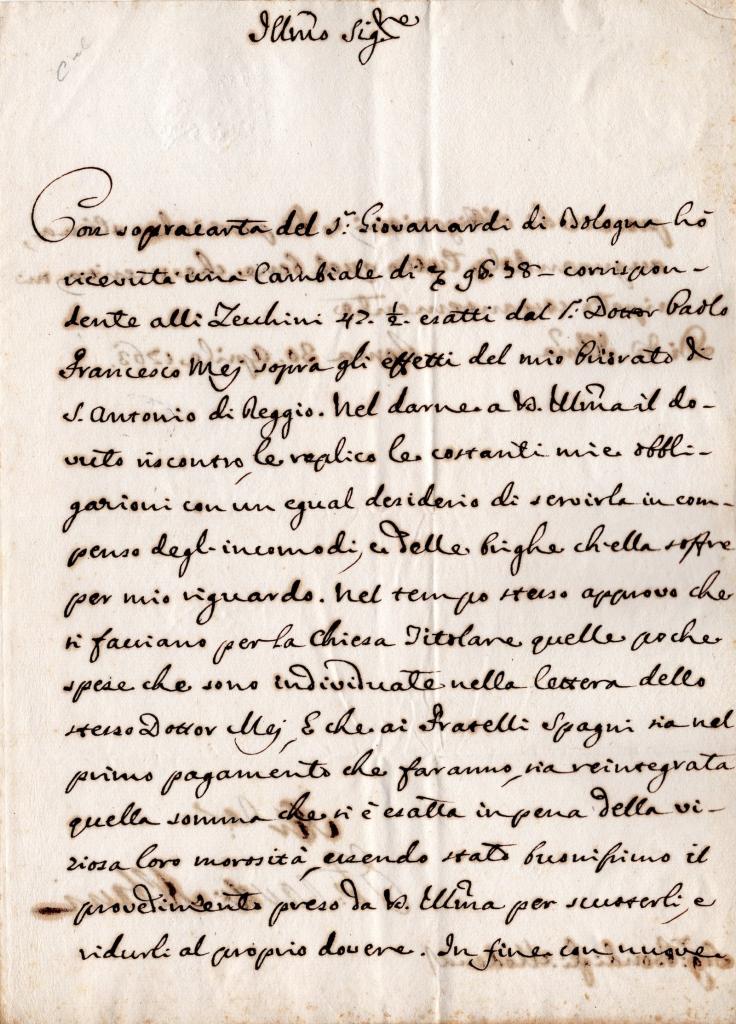 Illmo Sigre
Con sopracarta del Sr. Giovanardi di Bologna hò
ricevuta una Cambiale di 96. 38 - corrispon-
dente alli Zecchini 47. ½. esatti dal S. Dottor Paolo
Francesco Mej sopra gli effetti del mio Priorato di
S. Antonio di Reggio. Nel darne a V. Illma il do-
vuto riscontro, le replico le costanti mie obbli-
gazioni con un egual desiderio di servirla in com-
penso degl'incomodi, e delle brighe ch'ella soffre
per mio riguardo. Nel tempo stesso approvo che
si facciano per la Chiesa Titolare quelle poche
spese che sono individuate nella lettera dello
stesso Dottor Mej, E che ai Fratelli Spagni sia nel
primo pagamento che faranno, sia reintegrata
quella somma che si è esatta in pena della vi-
ziosa loro morosità, essendo stato buonissimo il
provedimento preso da V. Illma per scuoterli, e
ridurli al proprio dovere. In fine con nuove